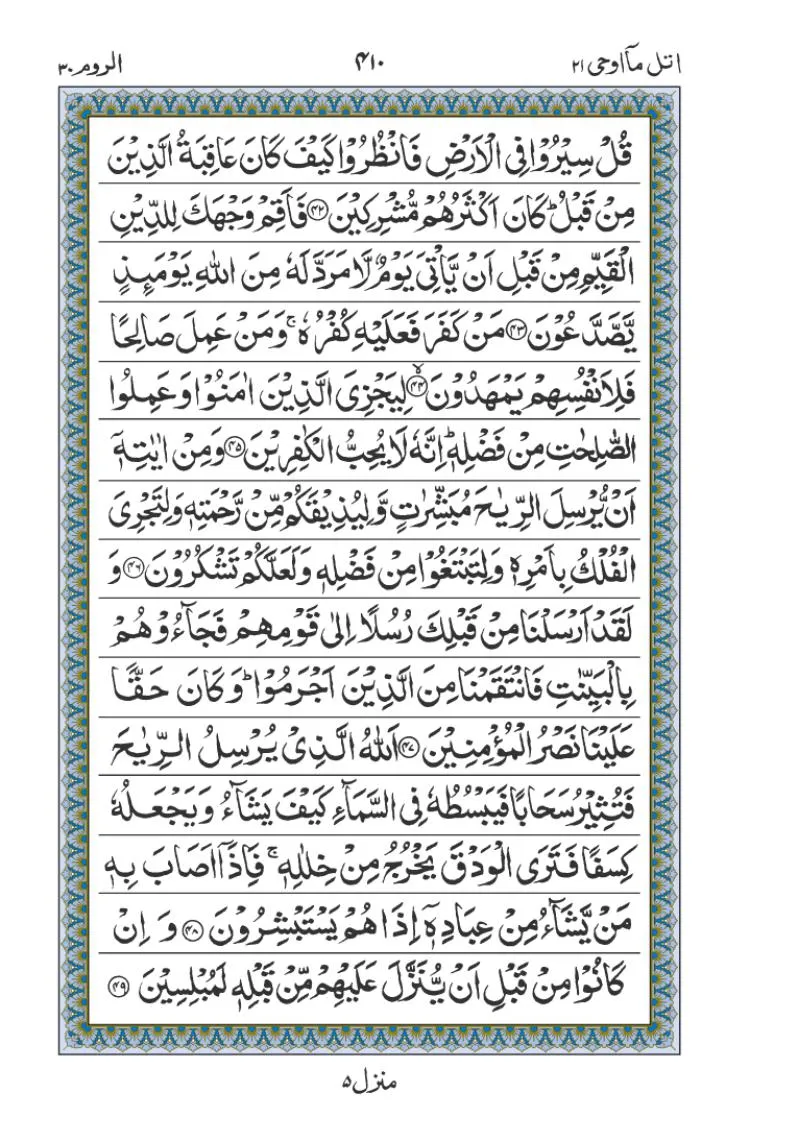 اتل مآاوحی ۲۱ ۴۱۰ الروم ۳۰
قُلْ سِيْرُوْا فِى الْاَرْضِ فَانْظُرُوْا كَيْفَ كَانَ عَاقِبَةُ الَّذِيْنَ
مِنْ قَبْلُ ؕ كَانَ اَكْثَرُهُمْ مُّشْرِكِيْنَ ۝۴۲ فَاَقِمْ وَجْهَكَ لِلدِّيْنِ
الْقَيِّمِ مِنْ قَبْلِ اَنْ يَّاْتِىَ يَوْمٌ لَّا مَرَدَّ لَهٗ مِنَ اللّٰهِ يَوْمَئِذٍ
يَّصَّدَّعُوْنَ ۝۴۳ مَنْ كَفَرَ فَعَلَيْهِ كُفْرُهٗ ۚ وَمَنْ عَمِلَ صَالِحًا
فَلِاَنْفُسِهِمْ يَمْهَدُوْنَ ۝۴۴ۙ لِيَجْزِىَ الَّذِيْنَ اٰمَنُوْا وَعَمِلُوا
الصّٰلِحٰتِ مِنْ فَضْلِهٖ ؕ اِنَّهٗ لَا يُحِبُّ الْكٰفِرِيْنَ ۝۴۵ وَمِنْ اٰيٰتِهٖۤ
اَنْ يُّرْسِلَ الرِّيٰحَ مُبَشِّرٰتٍ وَّلِيُذِيْقَكُمْ مِّنْ رَّحْمَتِهٖ وَلِتَجْرِىَ
الْفُلْكُ بِاَمْرِهٖ وَلِتَبْتَغُوْا مِنْ فَضْلِهٖ وَلَعَلَّكُمْ تَشْكُرُوْنَ ۝۴۶ وَ
لَقَدْ اَرْسَلْنَا مِنْ قَبْلِكَ رُسُلًا اِلٰى قَوْمِهِمْ فَجَآءُوْهُمْ
بِالْبَيِّنٰتِ فَانْتَقَمْنَا مِنَ الَّذِيْنَ اَجْرَمُوْا ؕ وَكَانَ حَقًّا
عَلَيْنَا نَصْرُ الْمُؤْمِنِيْنَ ۝۴۷ اَللّٰهُ الَّذِىْ يُرْسِلُ الرِّيٰحَ
فَتُثِيْرُ سَحَابًا فَيَبْسُطُهٗ فِى السَّمَآءِ كَيْفَ يَشَآءُ وَيَجْعَلُهٗ
كِسَفًا فَتَرَى الْوَدْقَ يَخْرُجُ مِنْ خِلٰلِهٖ ۚ فَاِذَاۤ اَصَابَ بِهٖ
مَنْ يَّشَآءُ مِنْ عِبَادِهٖۤ اِذَا هُمْ يَسْتَبْشِرُوْنَ ۝۴۸ وَ اِنْ
كَانُوْا مِنْ قَبْلِ اَنْ يُّنَزَّلَ عَلَيْهِمْ مِّنْ قَبْلِهٖ لَمُبْلِسِيْنَ ۝۴۹
منزل ۵